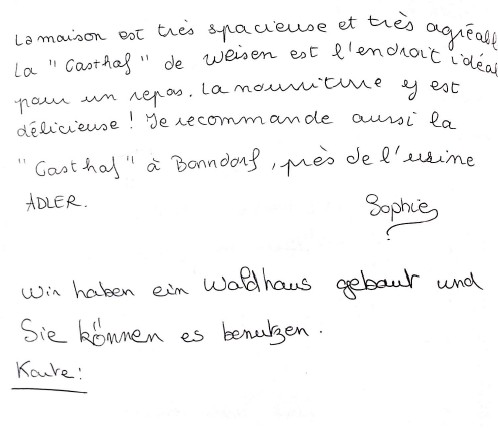 La maison est très spacieuse et très agréabl
La "Gasthof" de Weisen est l'endroit idéal
pour un repas. La nourriture y est
délicieuse! Je recommande aussi la
"Gasthof" à Bonndorf, près de l'usine
ADLER.
Sophie
Wir haben ein Waldhaus gebaut und
Sie können es benutzen.
Karte: